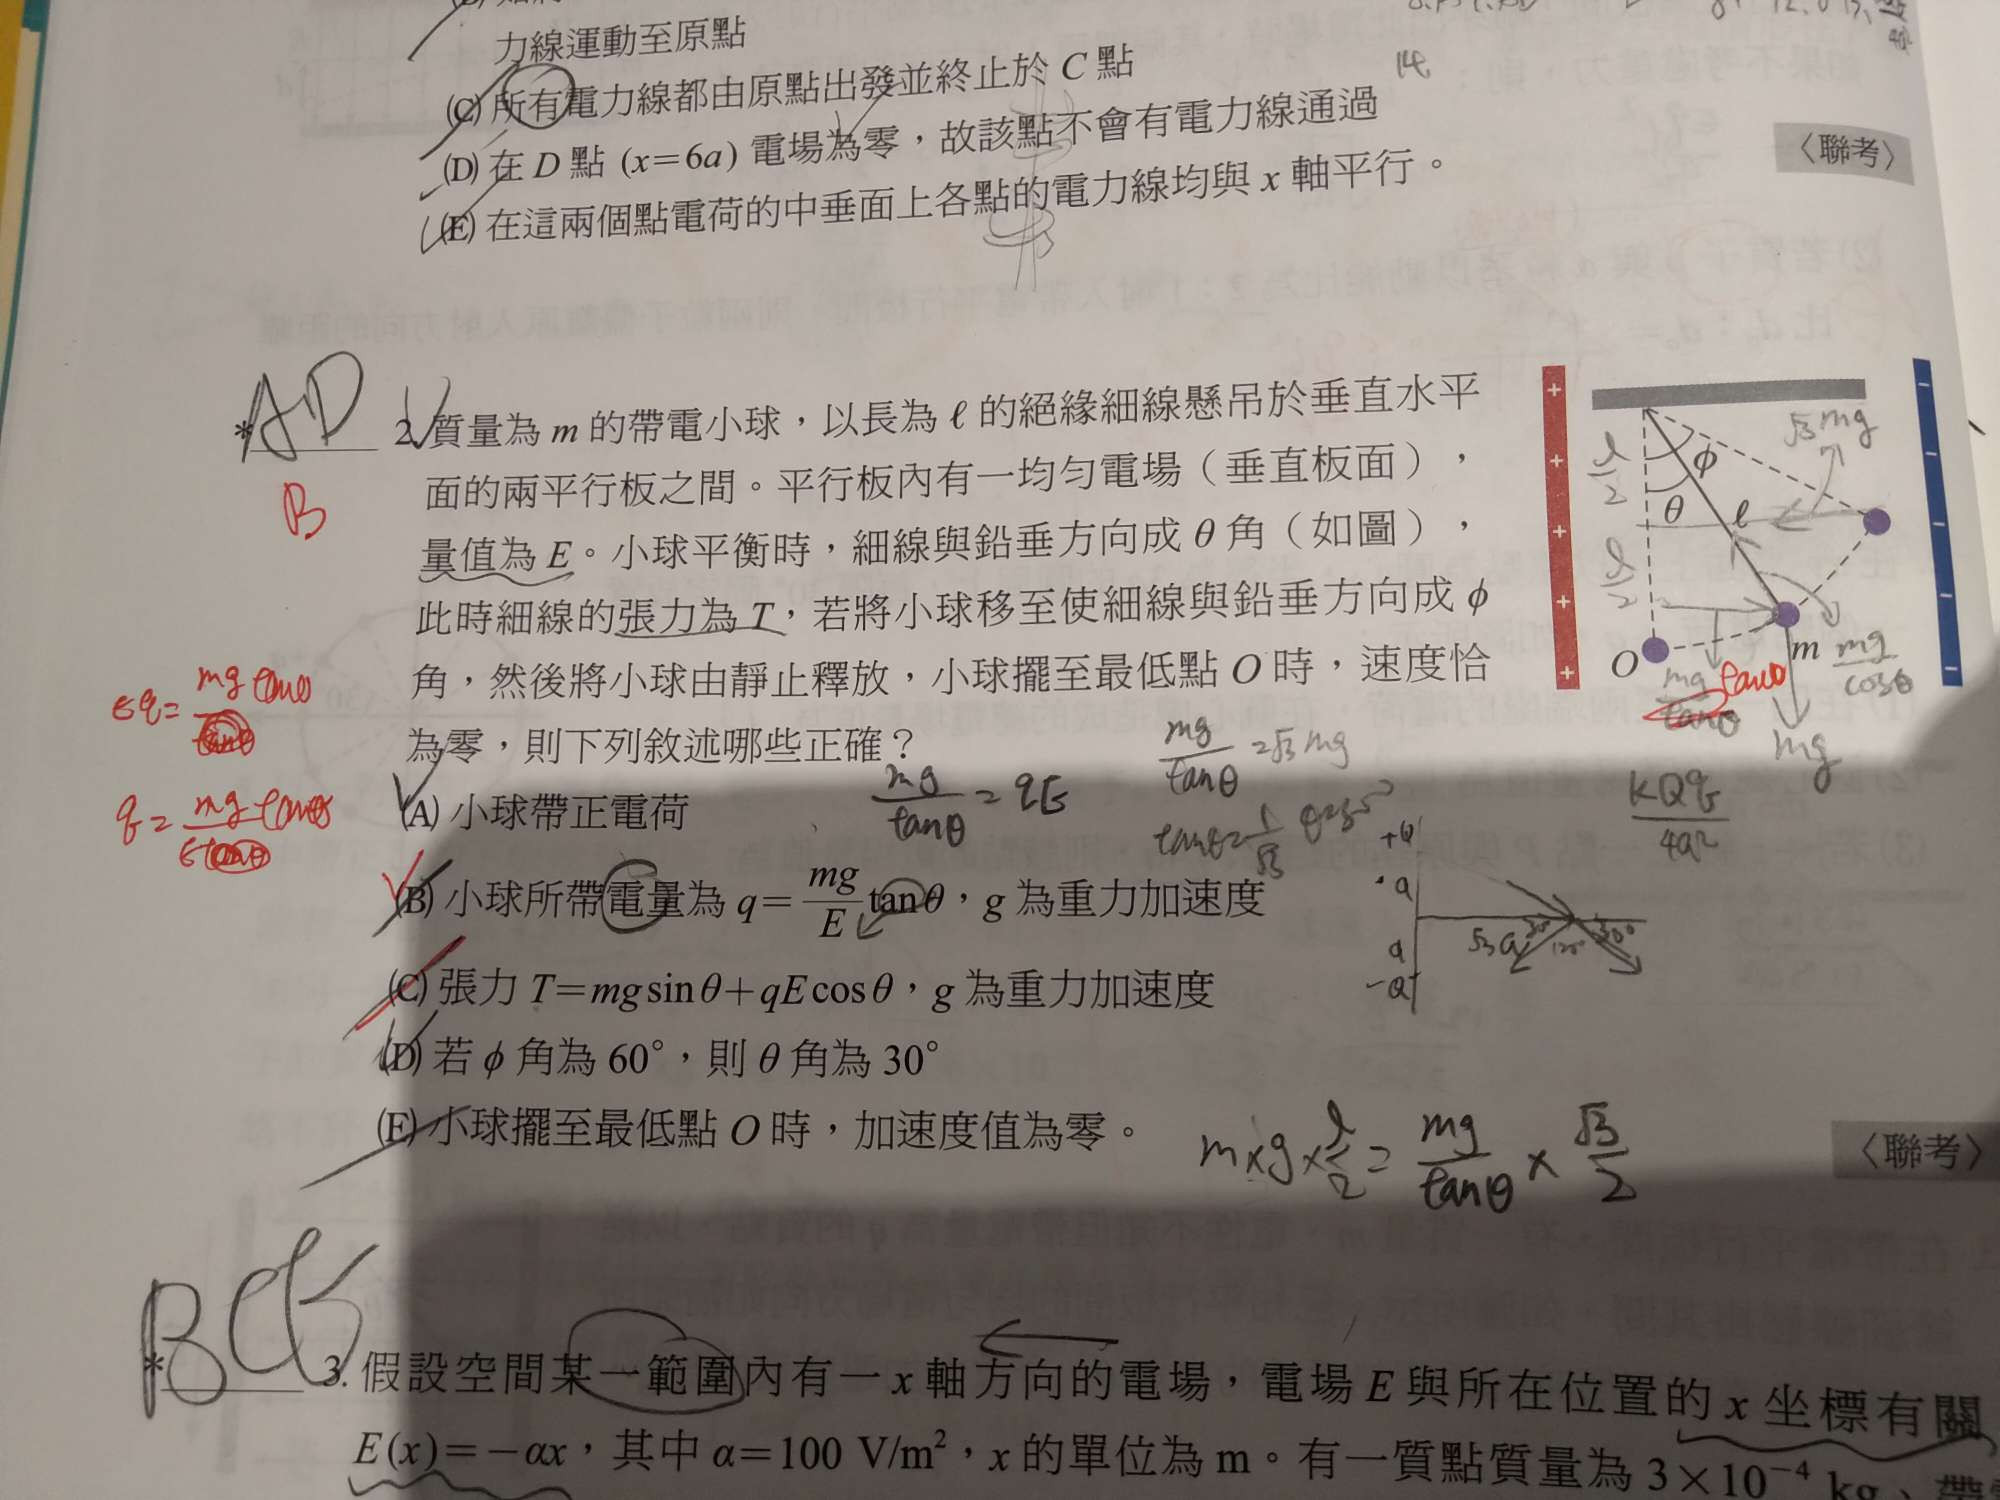 力線運動至原點
(C) 所有電力線都由原點出發並終止於 C 點
(D) 在 D 點 (x=6a) 電場為零，故該點不會有電力線通過
(E) 在這兩個點電荷的中垂面上各點的電力線均與 x 軸平行。
〈聯考〉
14
AD
B
*
2. 質量為 m 的帶電小球，以長為 ℓ 的絕緣細線懸吊於垂直水平
面的兩平行板之間。平行板內有一均勻電場（垂直板面），
量值為 E。小球平衡時，細線與鉛垂方向成 θ 角（如圖），
此時細線的張力為 T，若將小球移至使細線與鉛垂方向成 ϕ
角，然後將小球由靜止釋放，小球擺至最低點 O 時，速度恰
為零，則下列敘述哪些正確？
(A) 小球帶正電荷
(B) 小球所帶電量為 q=mg/E tanθ，g 為重力加速度
(C) 張力 T=mgsinθ+qEcosθ，g 為重力加速度
(D) 若 ϕ 角為 60°，則 θ 角為 30°
(E) 小球擺至最低點 O 時，加速度值為零。
〈聯考〉
+ + + + +
- - - - -
ϕ
θ
ℓ
O
m
√3 mg
ℓ/2
ℓ/2
mg/cosθ
tanθ
mg
mg/tanθ = qE
mg/tanθ = √3 mg
tanθ = 1/√3
kQq/4a²
+Q
a
a
-Q
√3 a
30°
120°
30°
m×g×ℓ/2 = mg/tanθ × √3/2
*
3. 假設空間某一範圍內有一 x 軸方向的電場，電場 E 與所在位置的 x 坐標有關
E(x)=−αx，其中 α=100 V/m²，x 的單位為 m。有一質點質量為 3×10⁻⁴ kg、帶